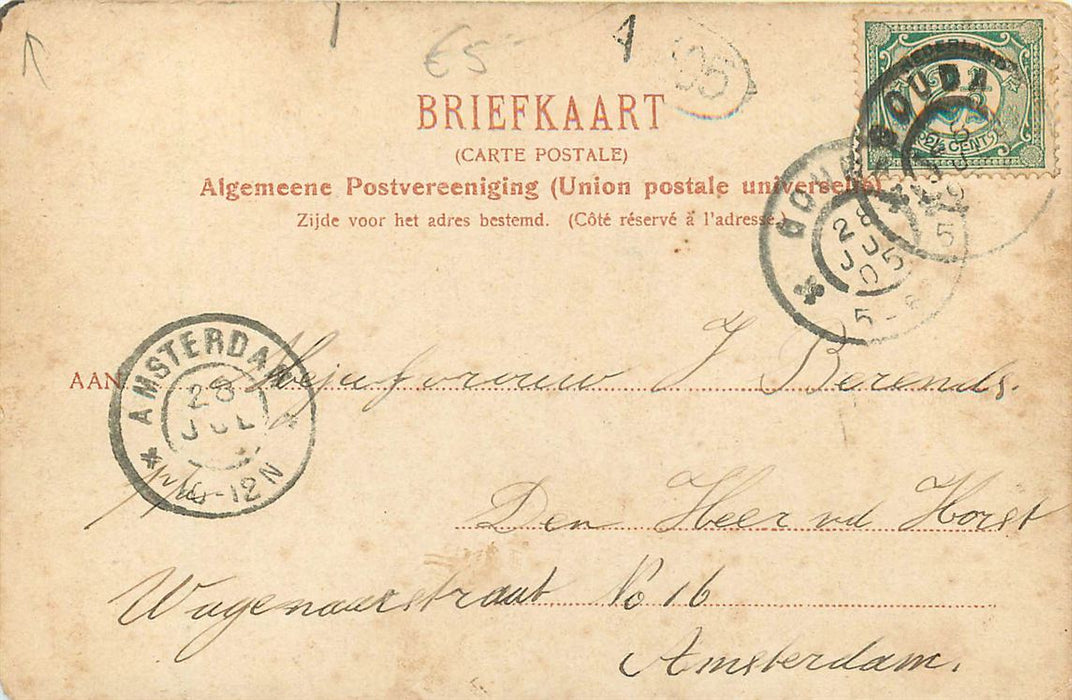 €5-
A
05
BRIEFKAART
(CARTE POSTALE)
Algemeene Postvereeniging (Union postale universelle)
Zijde voor het adres bestemd. (Côté réservé à l'adresse.)
NEDERLAND
2½ CENT
GOUDA
GOUDA
28 JUL 05
5-8
AMSTERDAM
28 JUL
10-12 N
AAN Mejufvrouw J Berends.
p/a
Den Heer vd Horst
Wagenaarstraat No 16
Amsterdam.